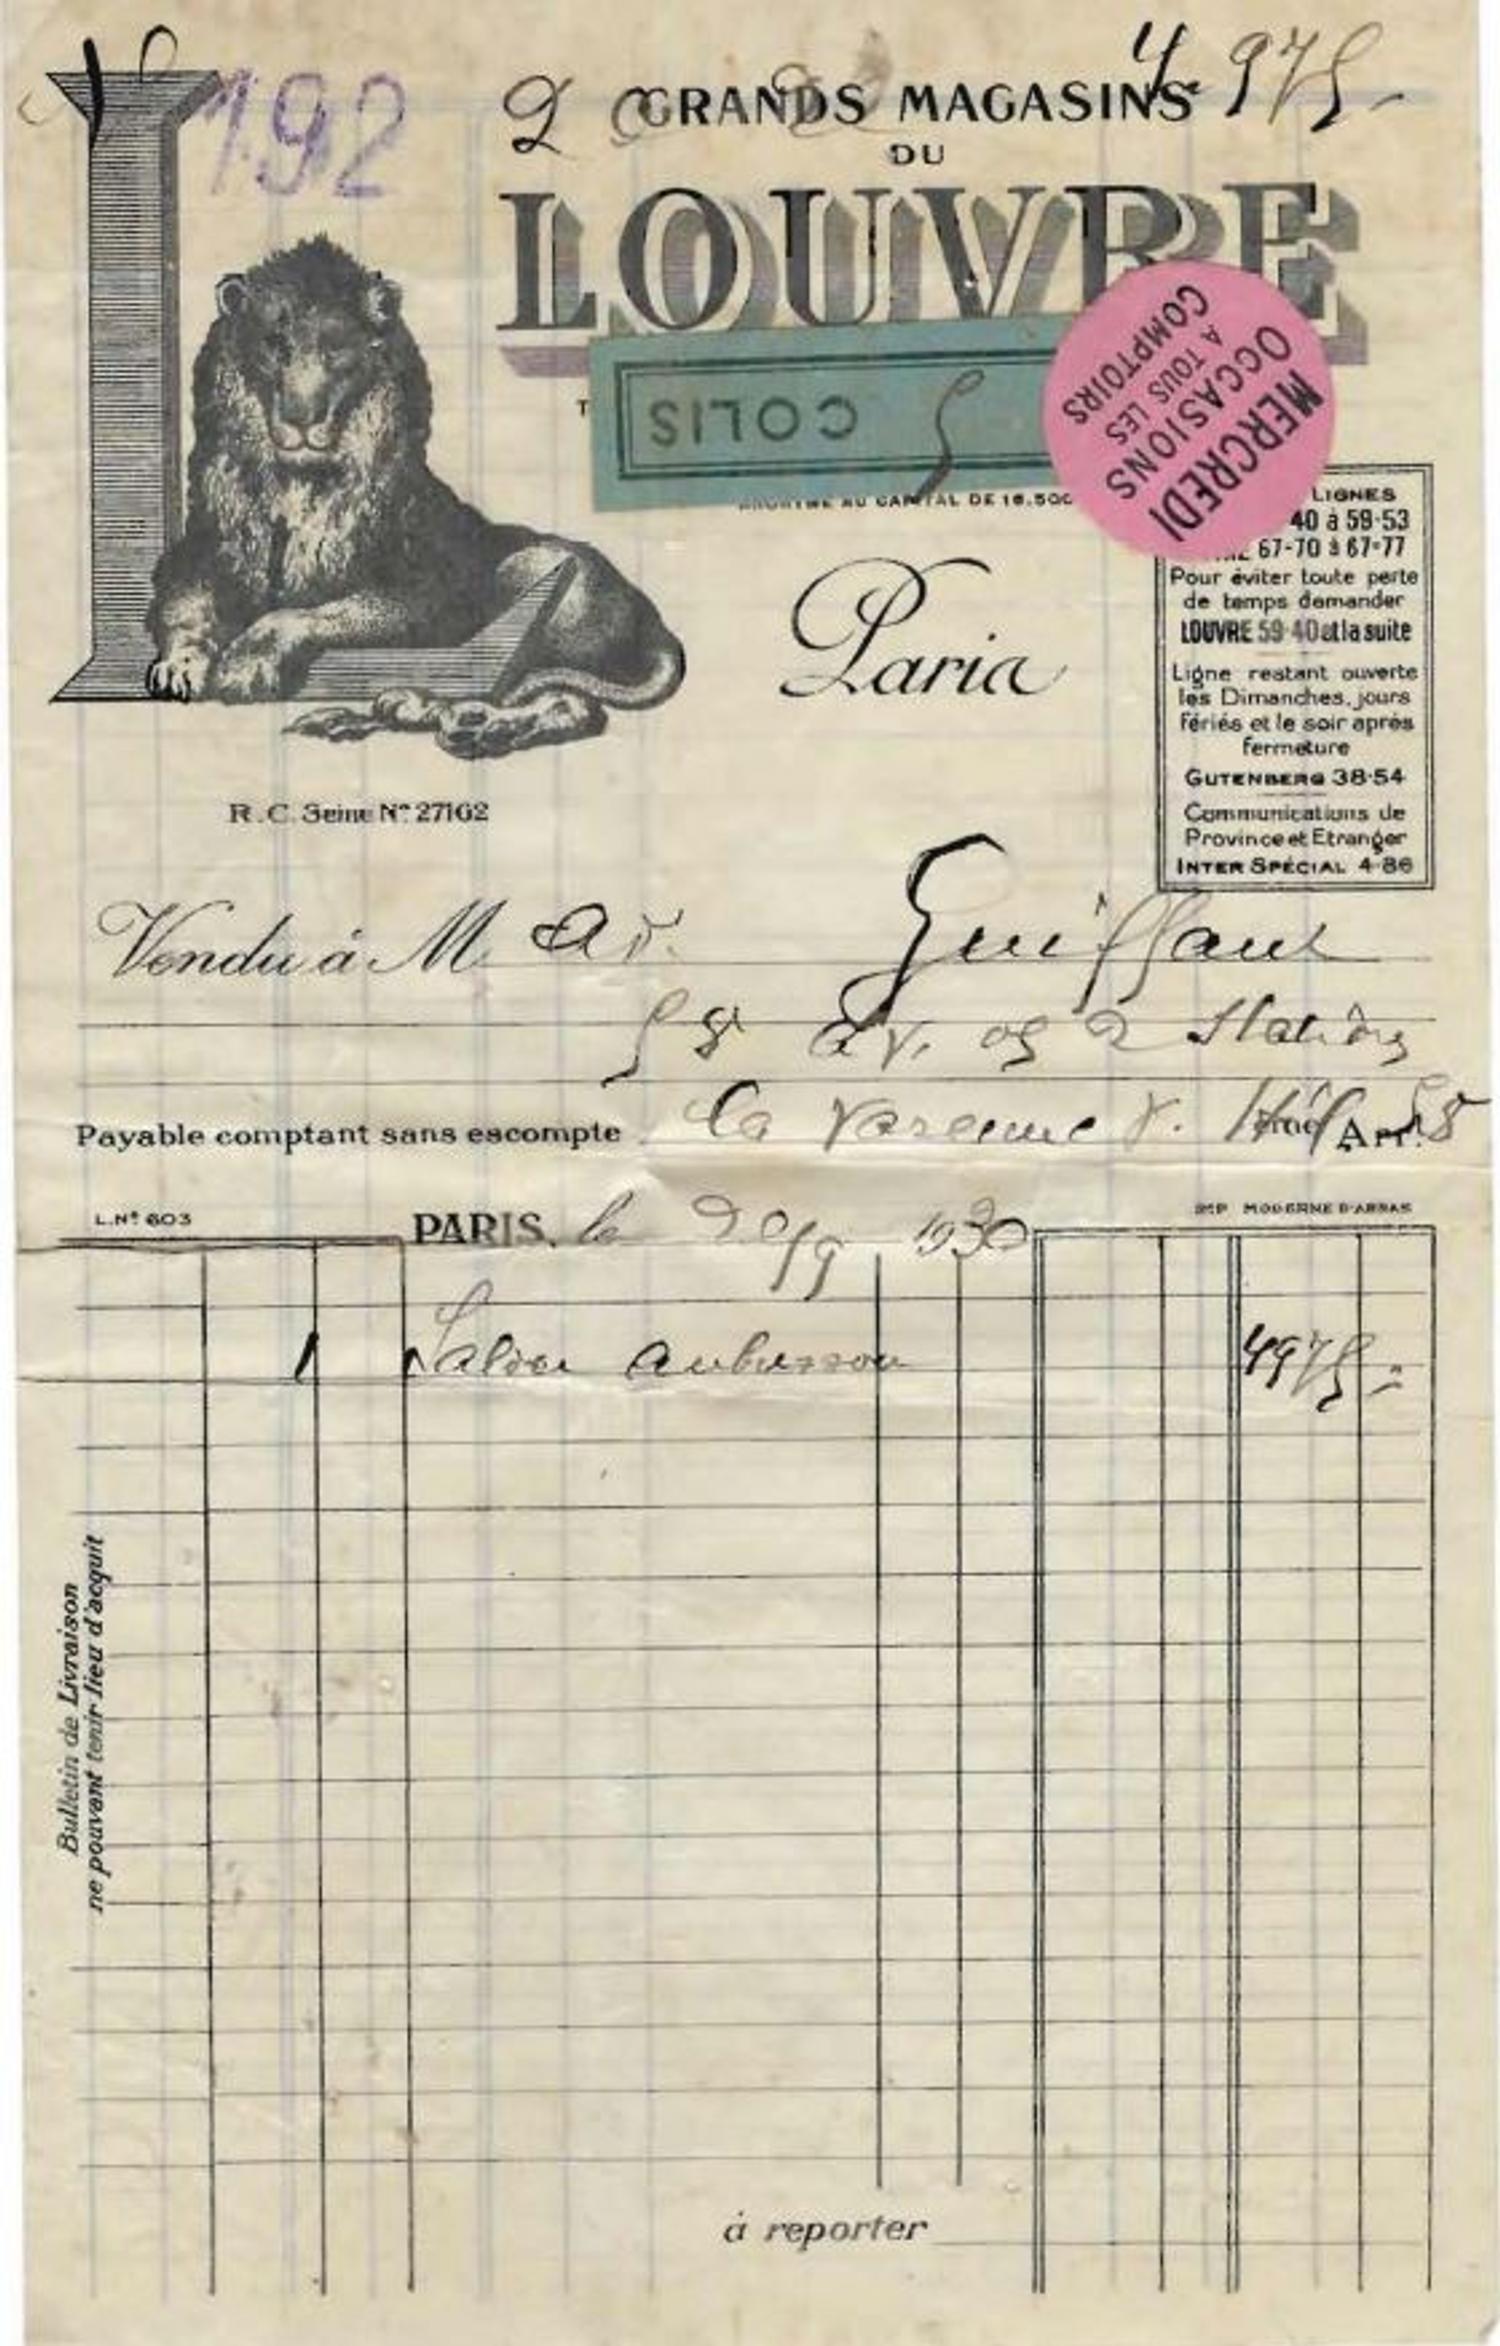 N° 192
2
4.975.-
GRANDS MAGASINS
DU
LOUVRE
COLIS 5
MERCREDI
OCCASIONS
A TOUS LES
COMPTOIRS
ANONYME AU CAPITAL DE 16.500
LIGNES
40 à 59-53
67-70 à 67-77
Pour éviter toute perte
de temps demander
LOUVRE 59-40 et la suite
Ligne restant ouverte
les Dimanches, jours
fériés et le soir après
fermeture
GUTENBERG 38-54
Communications de
Province et Etranger
INTER SPÉCIAL 4-86
Paris
R.C. Seine N° 27162
Vendu à M Guiffaut
58 av. 2 Stations
Payable comptant sans escompte la Varenne St. Hil Arrt 58
L.N° 603
PARIS, le 20/9 1930
IMP MODERNE D'ARRAS
1 Salon aubusson 4975-
Bulletin de Livraison
ne pouvant tenir lieu d'acquit
à reporter